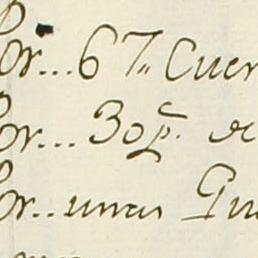 Por... 67„ Cuer
Por... 30 p.ˢ de
Por.. unas Gu